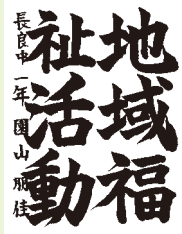 地域福
祉活動
長良中一年 園山丽佳